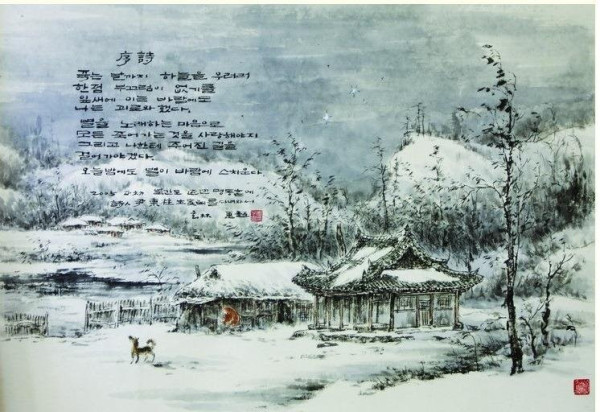 序詩
죽는 날까지 하늘을 우러러
한점 부끄럼이 없기를
잎새에 이는 바람에도
나는 괴로와 했다.
별을 노래하는 마음으로
모든 죽어가는 것을 사랑해야지
그리고 나한테 주어진 길을
걸어가야겠다.
오늘밤에도 별이 바람에 스치운다
명동촌에
尹東柱生家를